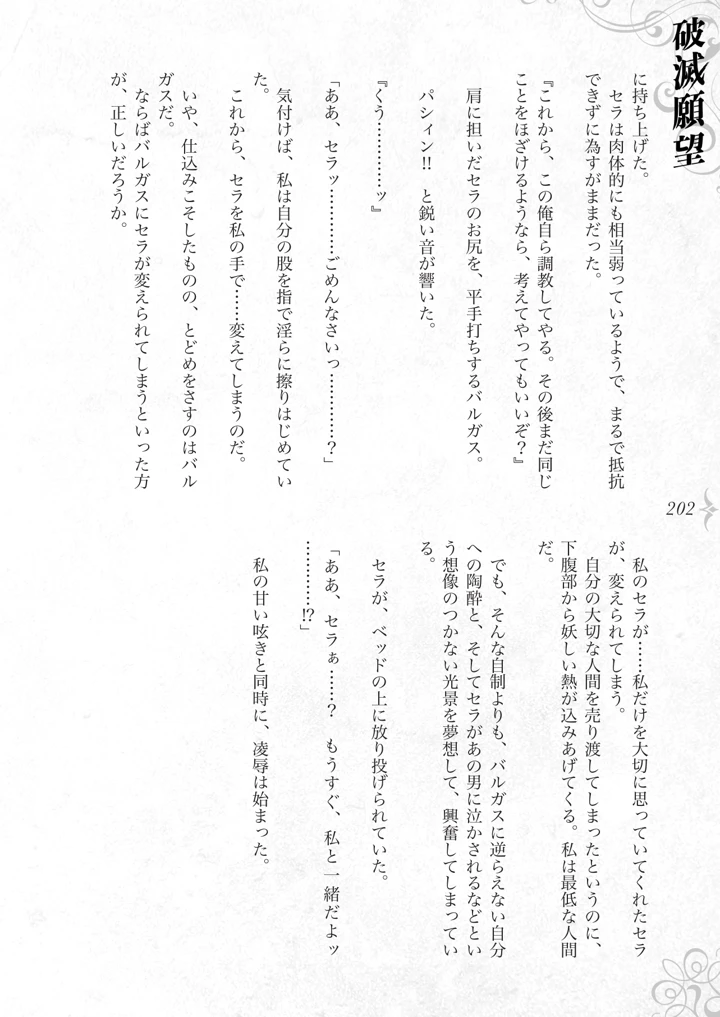 破滅願望
に持ち上げた。
セラは肉体的にも相当弱っているようで、まるで抵抗
できずに為すがままだった。
『これから、この俺自ら調教してやる。その後まだ同じ
ことをほざけるようなら、考えてやってもいいぞ？』
肩に担いだセラのお尻を、平手打ちするバルガス。
パシィン!!　と鋭い音が響いた。
『くう…………ッ』
「ああ、セラッ…………ごめんなさいっ…………？」
気付けば、私は自分の股を指で淫らに擦りはじめてい
た。
これから、セラを私の手で……変えてしまうのだ。
いや、仕込みこそしたものの、とどめをさすのはバル
ガスだ。
ならばバルガスにセラが変えられてしまうといった方
が、正しいだろうか。
202
私のセラが……私だけを大切に思っていてくれたセラ
が、変えられてしまう。
自分の大切な人間を売り渡してしまったというのに、
下腹部から妖しい熱が込みあげてくる。私は最低な人間
だ。
でも、そんな自制よりも、バルガスに逆らえない自分
への陶酔と、そしてセラがあの男に泣かされるなどとい
う想像のつかない光景を夢想して、興奮してしまってい
る。
セラが、ベッドの上に放り投げられていた。
「ああ、セラぁ……？　もうすぐ、私と一緒だよッ
…………!?」
私の甘い呟きと同時に、凌辱は始まった。